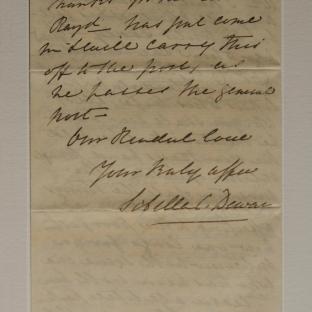 Rayd has just come
in & will carry this
off to the post, as
he passes the general
post -
Our kindest love
Your truly affec